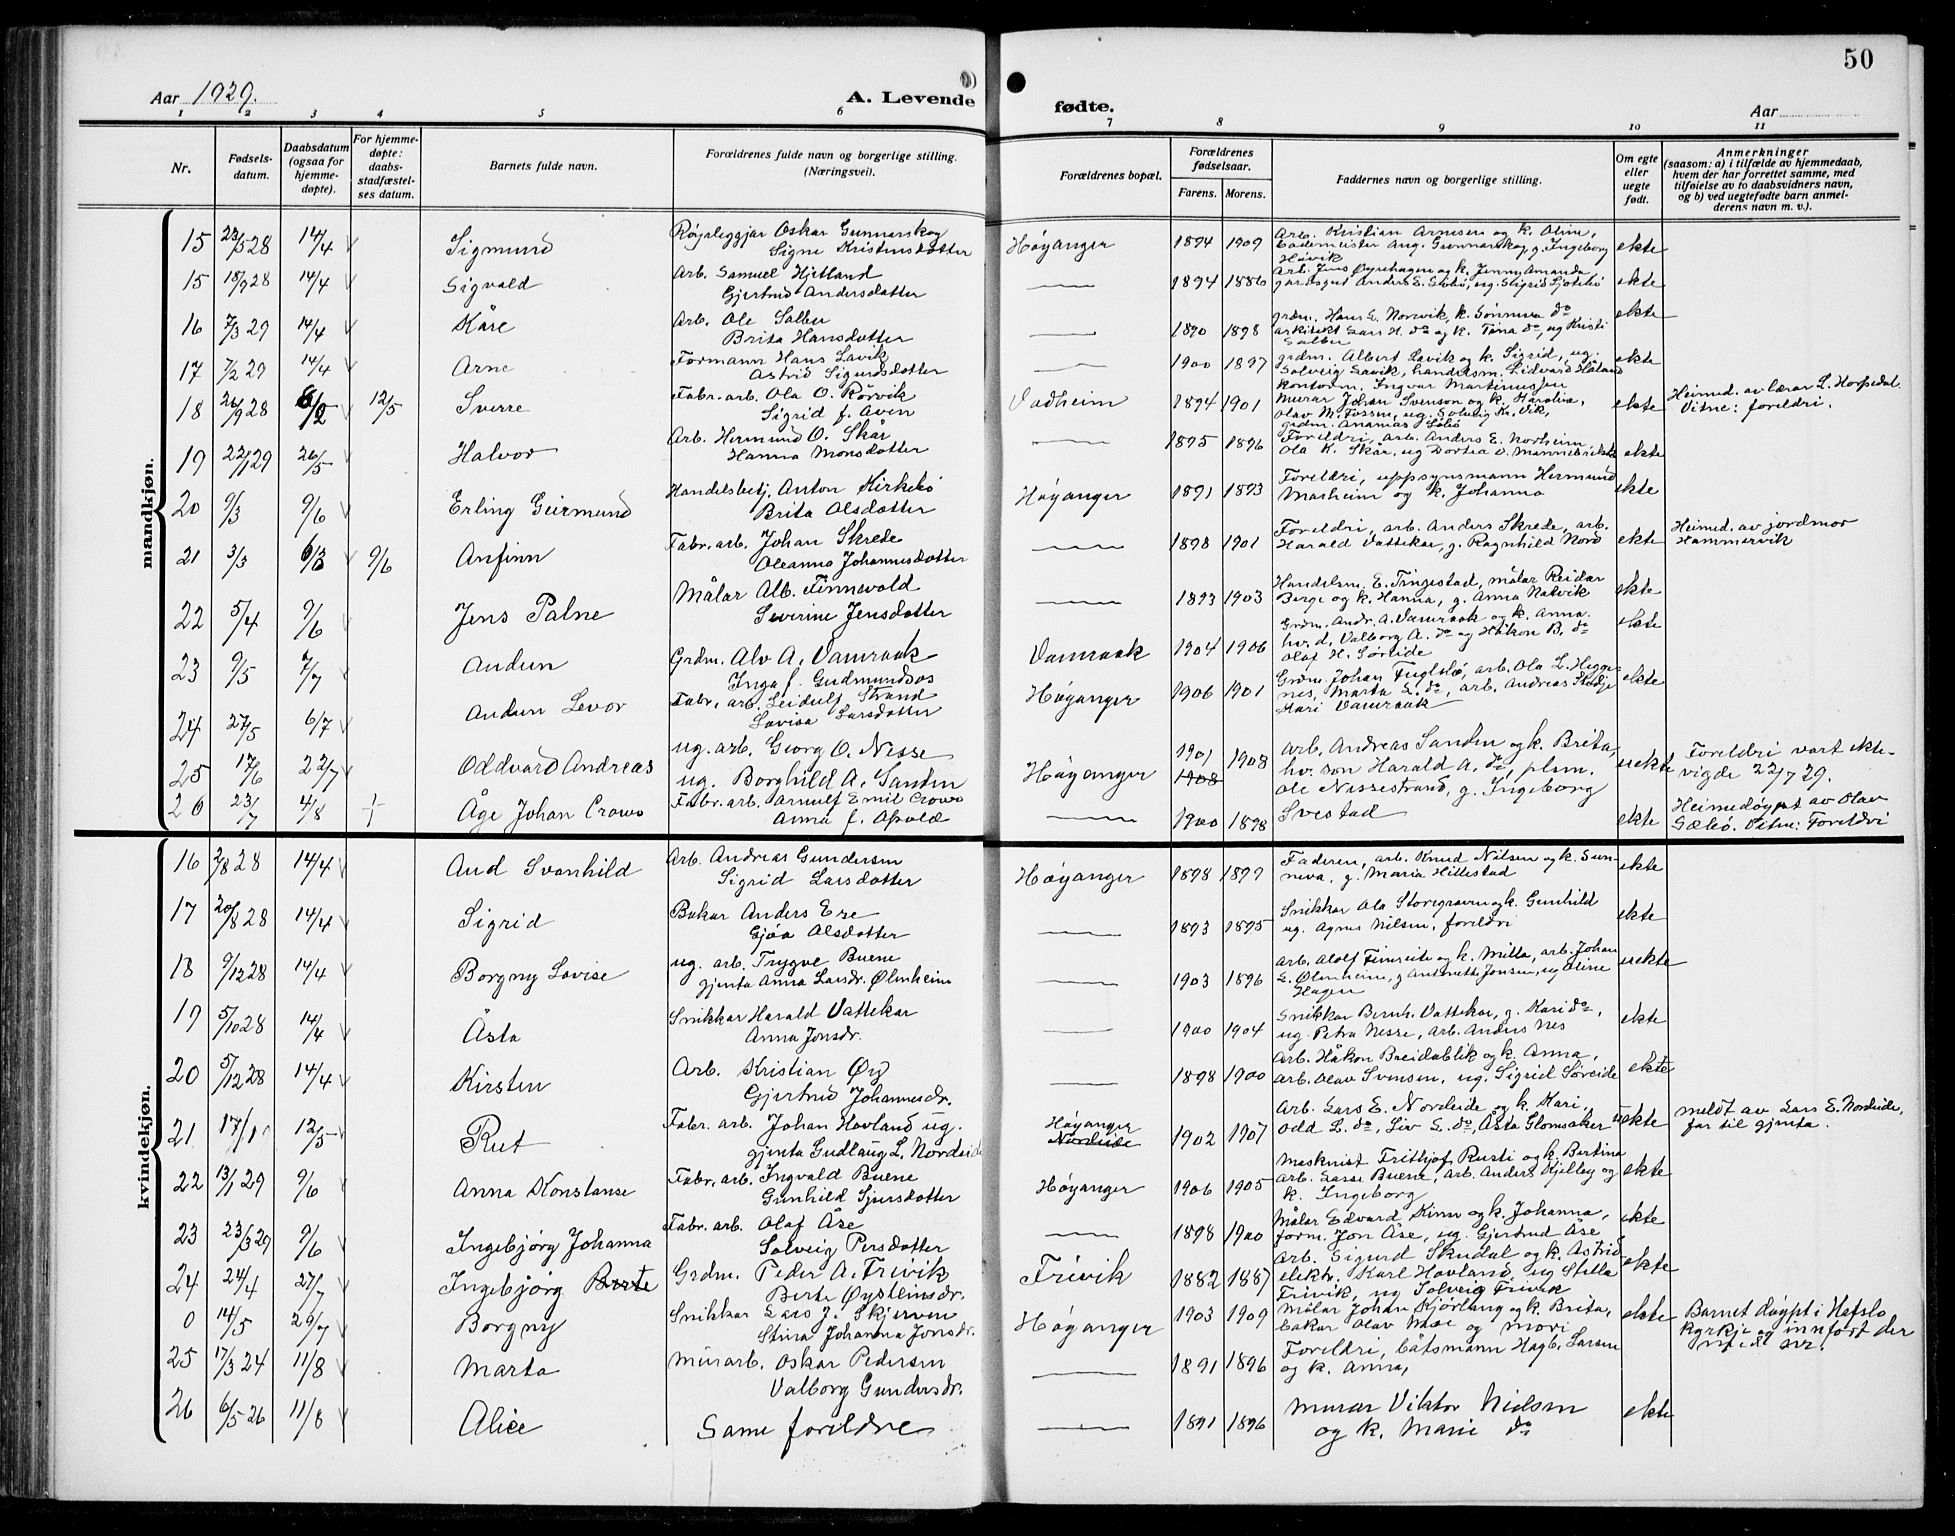 50
Aar 1929.
A. Levende
fødte.
Aar
1 2 3 4 5 6 7 8 9 10 11
Nr.
Fødsels-
datum.
Daabsdatum
(ogsaa for
hjemme-
døpte).
For hjemme-
døpte:
daabs-
stadfæstel-
ses datum.
Barnets fulde navn.
Forældrenes fulde navn og borgerlige stilling.
(Næringsvei).
Forældrenes bopæl.
Forældrenes
fødselsaar.
Farens. Morens.
Faddernes navn og borgerlige stilling.
Om egte
eller
uegte
født.
Anmerkninger
(saasom: a) i tilfælde av hjemmedaab,
hvem der har forrettet samme, med
tilføielse av to daabsvidners navn,
og b) ved uegtefødte barn anmel-
derens navn m. v.).
mandkjøn.
15 23/5 28 14/4 Sigmund Røyrleggjar Oskar Gunnarskog
Signe Kristensdotter Høyanger 1894 1909 Arb. Kristian Arnesen og k. Oline,
Bademeister Aug. Gunnarskog, g. Ingeborg
Høvik ekte
15 18/9 28 14/4 Sigvald Arb. Samuel Hjetland
Gjertrud Andersdotter 1894 1886 Arb. Jens Øyrehagen og k. Jenny Amanda
gardsgut Anders E. ekte
16 7/3 29 14/4 Kåre Arb. Ole Salbu
Brita Hansdotter 1890 1898 grdm. Hans E. Norevik, k. Sønneva do
arkitekt Lars H. do og k. Tina do, ug Kristi
Salbu ekte
17 7/2 29 14/4 Arne Formann Hans Lavik
Astrid Sigurdsdotter 1900 1897 grdm. Albert Lavik og k. Sigrid, ug.
Solveig Lavik, handelsm. Lidvard Håland
kontorm. Ingvar Martinussen ekte
18 26/9 28 12/5 Sverre Fabr. arb. Ola O. Rørvik
Sigrid f. Aven Vadheim 1894 1901 Murar Johan Svenson og k. Karolina,
Olav M. Fossen, ug. Solveig Kr. Vik,
grdm. Ananias ekte Heimed. av lærar L. Horpedal.
Vitne: foreldri.
19 22/1 29 26/5 Halvor Arb. Hermund O. Skår
Hanna Monsdotter 1895 1896 Foreldri, arb. Anders E. Norheim
Ola K. Skar, ug Dortea ekte
20 9/3 9/6 Erling Geirmund Handelsbetj. Anton Kirkebø
Brita Olsdotter Høyanger 1891 1893 Foreldri, uppsynsmann Hermund
Marheim og k. Johanna ekte
21 3/3 6/3 9/6 Anfinn Fabr. arb. Johan Skrede
Oleanna Johannesdotter 1898 1901 Foreldri, arb. Anders Skrede, arb.
Harald Vattekar, g. Ragnhild Nord ekte Heimed. av jordmor
Hammervik
22 5/4 9/6 Jens Palne Målar Alb. Finnevold
Severine Jensdotter 1893 1903 Handelsm. E. Tingestad, målar Reidar
Berge og k. Hanna, g. Anna Nalvik ekte
23 9/5 7/7 Audun Grdm. Alv A. Vamraak
Inga f. Gudmundsos Vamraak 1904 1906 Grdm. Andr. A. Vamraak og k. Anna
hv. d. Valborg A. do og Håkon B. do
Olaf H. Søreide ekte
24 27/5 6/7 Audun Levor Fabr. arb. Leidulf Strand
Lovisa Larsdotter Høyanger 1906 1901 Grdm. Johan Fuglebø, arb. Ola L. Hegge
nes, Marta L. do, arb. Andreas
Kari Vamraak ekte
25 17/6 22/7 Oddvard Andreas ug. arb. Georg O. Nesse
ug. Borghild A. Sanden Høyanger 1901 1908 1908 arb. Andreas Sanden og k. Brita,
hv. son Harald A. do, plsm.
Ole Nessestrand, g. Ingeborg
Svestad uekte Foreldri vart ekte-
vigde 22/7 29.
26 23/7 4/8 + Åge Johan Crowo Fabr. arb. Arnulf Emil Crowo
Anna f. Opvold 1900 1898 ekte Heimedøypt av Olav
Gælø. Vitne: Foreldri
kvindekjøn.
16 2/8 28 14/4 Aud Svanhild Arb. Andreas Gundersen
Sigrid Larsdotter Høyanger 1898 1899 Faderen, arb. Knud Nilsen og k. Sun-
neva, g. Maria Hillestad ekte
17 20/8 28 14/4 Sigrid Bakar Anders Ere
Gjøa Olsdotter 1893 1895 Snikkar Ola Storegraven og k. Gunhild
ug. Agnes Nilsen, foreldri ekte
18 9/12 28 14/4 Borgny Lovise ug. arb. Trygve Buene
gjenta Anna Larsdr. Ølmheim 1903 1896 arb. Adolf Finseite og k. Milla, arb. Johan
L. Ølmheim, g Antonette Jonsen, ug Oline
Hagen uekte
19 5/10 28 14/4 Åsta Snikkar Harald Vattekar
Anna Jonsdr. 1900 1904 Snikkar Bernh. Vattekar, g. Kari do,
ug. Petra Nesse, arb. Anders Nes ekte
20 5/12 28 14/4 Kirsten Arb. Kristian Øy
Gjertrud Johannesdr. 1898 1900 Arb. Håkon Breidablik og k. Anna,
arb. Olav Svensen, ug. Sigrid Søreide ekte
21 17/1 12/5 Rut Fabr. arb. Johan Hovland ug.
gjenta Gudlaug L. Nordeide Høyanger
Nordeide 1902 1907 Arb. Lars E. Nordeide og k. Kari,
Odd L. do, Liv L. do, Åsta Glomsaker uekte meldt av Lars E. Nordeide,
far til gjenta.
22 13/1 29 9/6 Anna Konstanse Fabr. arb. Ingvald Buene
Gunhild Sjursdotter Høyanger 1906 1905 Maskinist Frithjof Rusti og k. Bertina
Arb. Lasse Buene, arb. Anders Kjelley og
k. Ingeborg ekte
23 23/3 29 9/6 Ingebjørg Johanna Fabr. arb. Olaf Åse
Solveig Persdotter 1898 1900 Målar Edvard Kinn og k. Johanna,
form. Jon Åse, ug. Gjertrud Åse ekte
24 24/4 27/7 Ingebjørg Berte Grdm. Peder A. Frivik
Berte Øysteinsdr. Frivik 1882 1887 Arb. Sigurd Skudal og k. Astrid
elektr. Karl Hovland, ug Stella
Frivik, ug Solveig Frivik ekte
0 14/5 29/7 Borgny Snikkar Lars J. Skjerven
Stina Johanna Jonsdr. Høyanger 1903 1909 Målar Johan Kjørlaug og k. Brita,
bakar Olav Moe og mori ekte Barnet døypt i Hafslo
kyrkje og innført der
25 17/3 24 11/8 Marta Murarb. Oskar Pedersen
Valborg Gundersdr. 1891 1896 Foreldri, båtsmann Hagb. Larsen
og k. Anna,
26 6/5 26 11/8 Alice Same foreldre 1891 1896 Murar Viktor Nielsen
og k. Marie do ekte